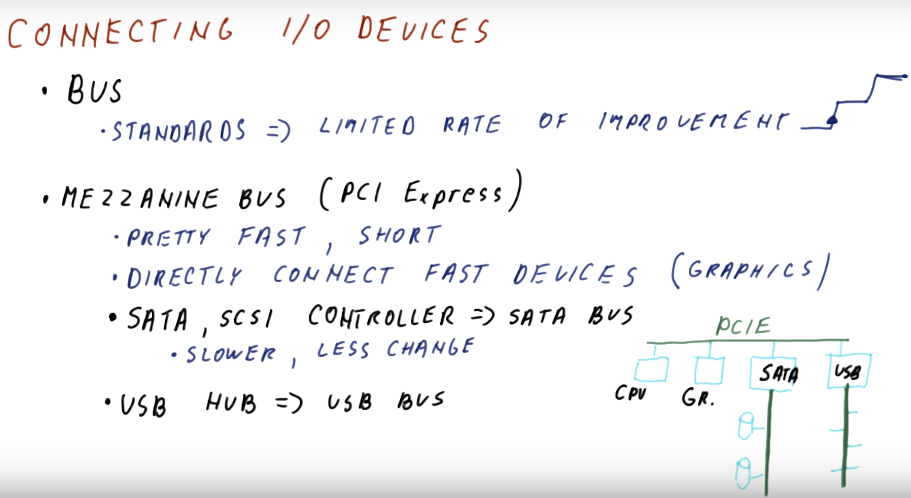 CONNECTING I/O DEVICES
• BUS
• STANDARDS => LIMITED RATE OF IMPROVEMENT
• MEZZANINE BUS (PCI Express)
• PRETTY FAST, SHORT
• DIRECTLY CONNECT FAST DEVICES (GRAPHICS)
• SATA, SCSI CONTROLLER => SATA BUS
• SLOWER, LESS CHANGE
• USB HUB => USB BUS
PCIE
CPU
GR.
SATA
USB